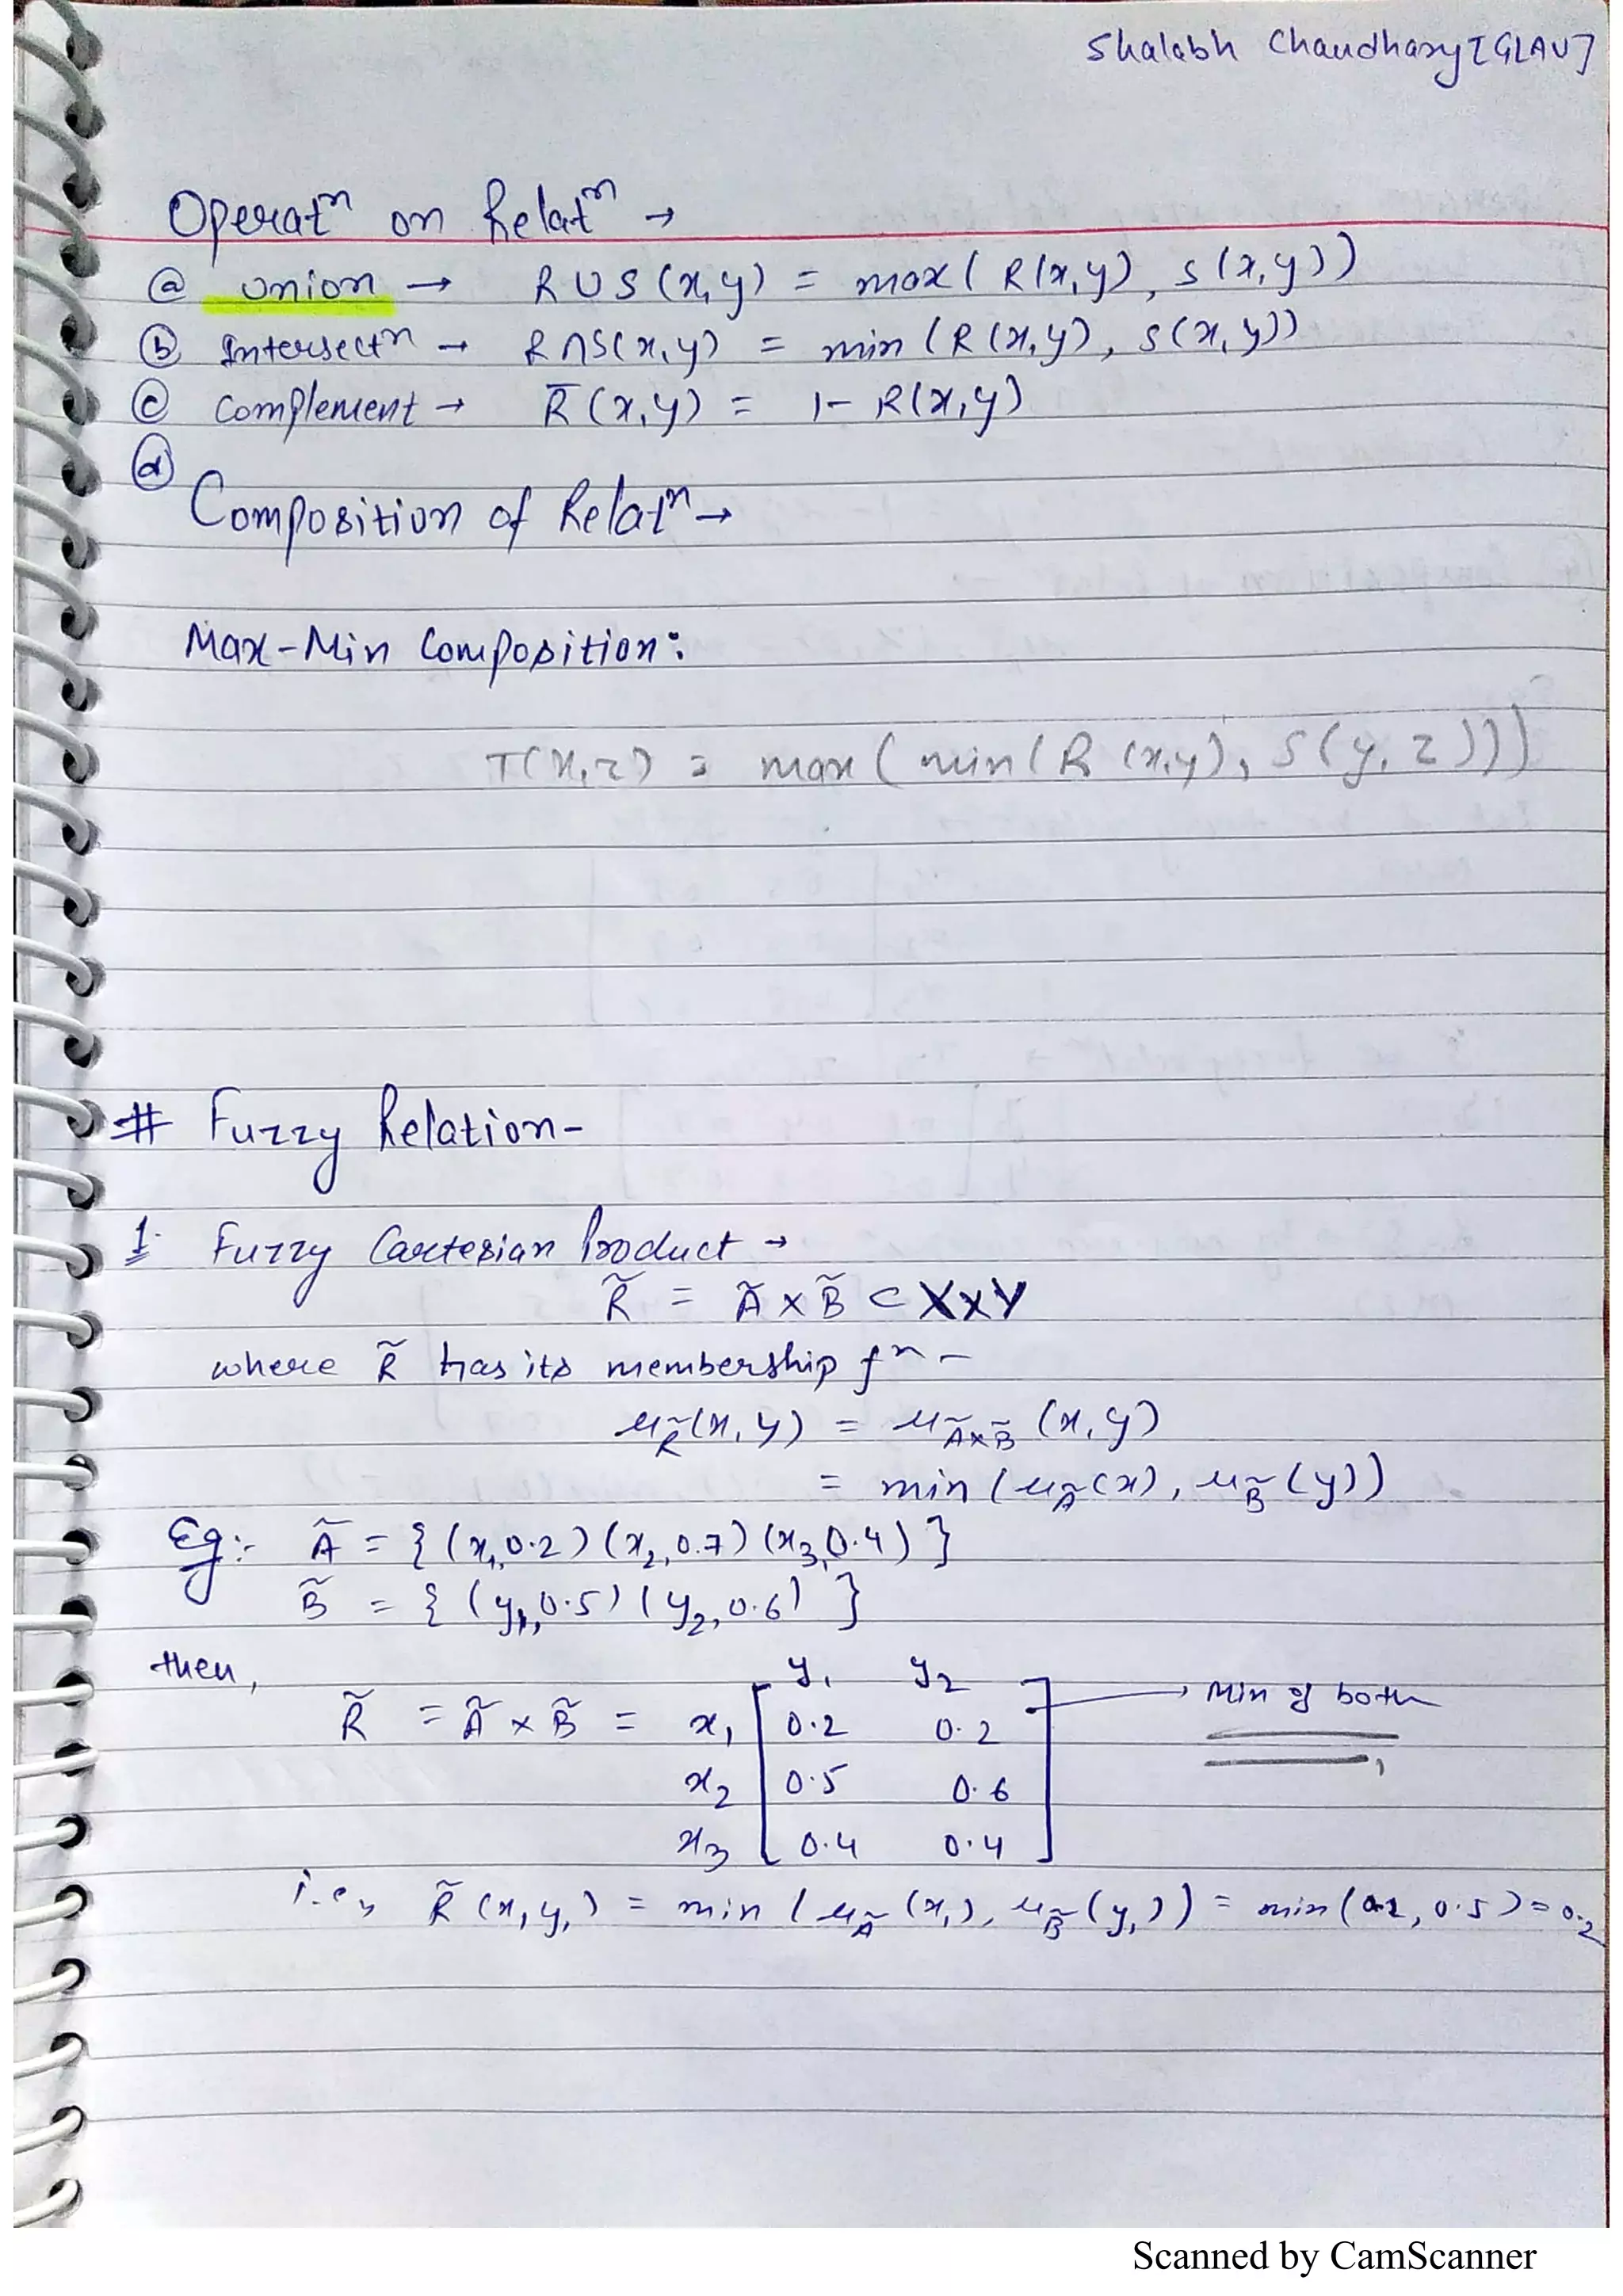 Shalabh Chaudhary [GLAU]
Operatⁿ on Relatⁿ →
ⓐ union → R ∪ S (x,y) = max ( R(x,y), S(x,y))
ⓑ Intersectⁿ → R ∩ S(x,y) = min (R (x,y), S(x,y))
ⓒ Complement → R̅ (x,y) = 1- R(x,y)
ⓓ
Composition of Relatⁿ →
Max-Min Composition:
T(x,z) = max ( min ( R (x,y), S(y,z)))
# Fuzzy Relation-
1. Fuzzy Cartesian Product →
R̃ = Ã × B̃ ⊂ X×Y
where R̃ has its membership fⁿ -
μ_R̃(x,y) = μ_Ã×B̃ (x,y)
= min (μ_Ã(x), μ_B̃(y))
Eg:- Ã = { (x₁,0.2) (x₂,0.7) (x₃,0.4) }
B̃ = { (y₁,0.5) (y₂,0.6) }
then,
y₁ y₂
R̃ = Ã × B̃ = x₁ [ 0.2 0.2 ] → Min of both
x₂ 0.5 0.6
x₃ 0.4 0.4
i.e., R̃ (x,y₁) = min ( μ_Ã (x₁), μ_B̃ (y₁)) = min (0.2, 0.5) = 0.2
Scanned by CamScanner